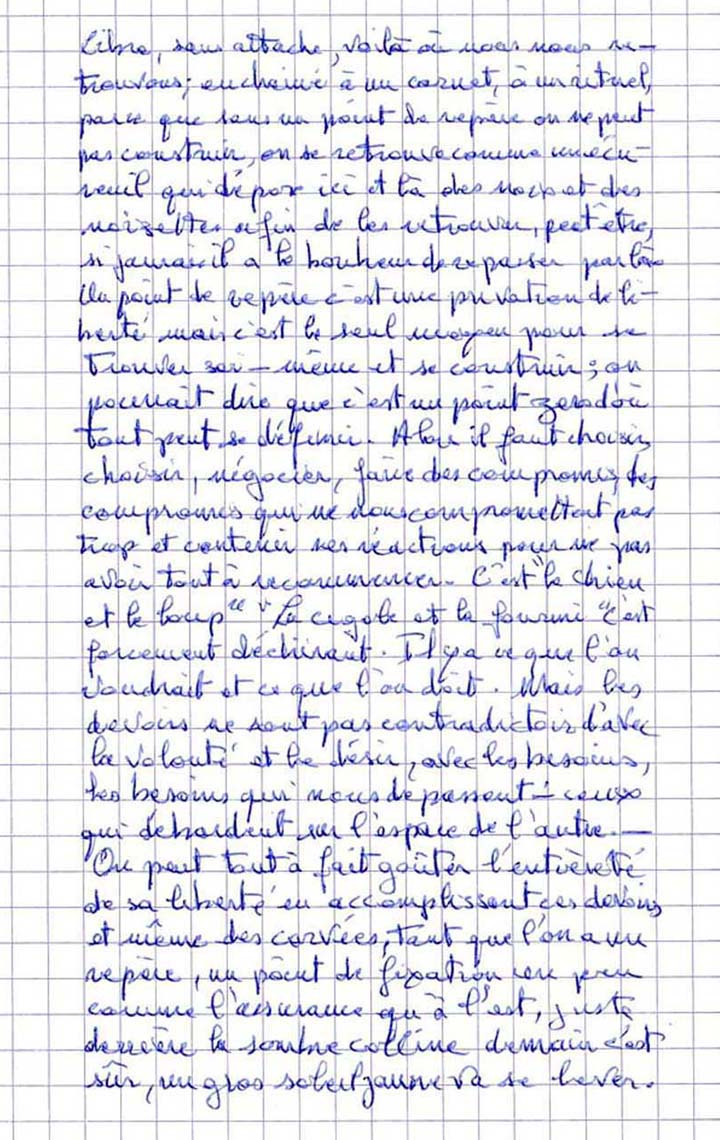 Libre, sans attache, voilà où nous nous re-
trouvons; enchainé à un carnet, à un rituel,
parce que sans un point de repère on ne peut
pas construire, on se retrouve comme un écu-
reuil qui dépose ici et là des noix et des
noizettes afin de les retrouver, peut être,
si jamais il a le bonheur de repasser par là.
Un point de repère c'est une privation de li-
berté mais c'est le seul moyen pour se
trouver soi-même et se construire; on
pourrait dire que c'est un point zero d'où
tout peut se définir. Alors il faut choisir,
choisir, négocier, faire des compromis, des
compromis qui ne nous compromettent pas
trop et contenir ses réactions pour ne pas
avoir tout à recommencer. C'est "le chien
et le loup" "La cigale et la fourmi" c'est
forcement déchirant. Il y a ce que l'on
voudrait et ce que l'on doit. Mais les
devoirs ne sont pas contradictoirs avec
la volonté et le désir, avec les besoins,
les besoins qui nous depassent - ceux
qui débordent sur l'espace de l'autre. -
On peut tout à fait goûter l'entièreté
de sa liberté en accomplissant ces devoirs
et même des corvées, tant que l'on a un
repère, un point de fixation un peu
comme l'assurance qu'à l'est, juste
derrière la sombre colline demain c'est
sûr, un gros soleil jaune va se lever.